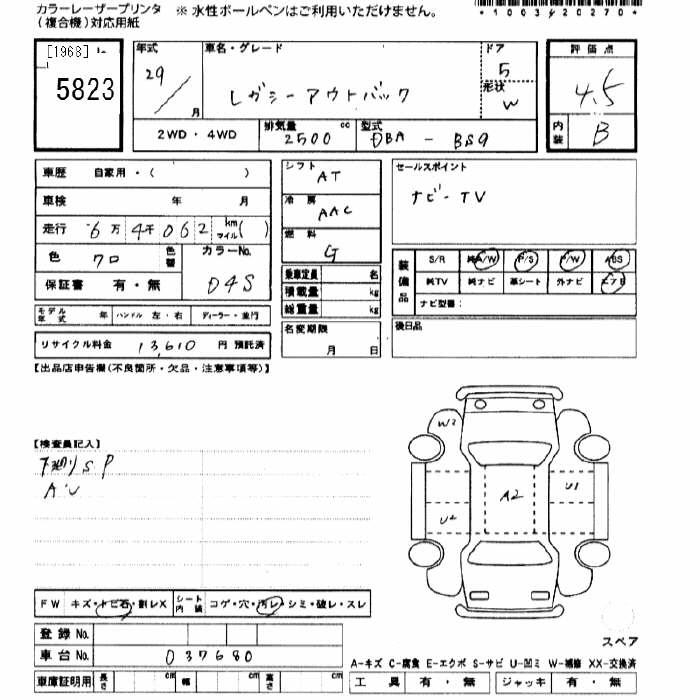 カラーレーザープリンタ
(複合機)対応用紙
※ 水性ボールペンはご利用いただけません。
*100J20270*
[1968]
5823
年式
29/ 月
車名・グレード
レガシーアウトバック
ドア
5
形状
W
評価点
4.5
内装
B
2WD・4WD
排気量
2500 cc
型式
DBA - BS9
車歴 自家用・( )
車検 年 月
走行 6万4千062 km マイル( )
色 クロ 色替
カラーNo.
D4S
保証書 有・無
モデル年式 年 ハンドル 左・右 ディーラー・並行
リサイクル料金 13,610 円 預託済
シフト
AT
冷房
AAC
燃料
G
乗車定員 名
積載量 kg
総重量 kg
名変期限
月 日
セールスポイント
ナビ-TV
装備品
S/R 純A/W P/S P/W ABS
純TV 純ナビ 革シート 外ナビ エアB
ナビ型番:
後日品
【出品店申告欄(不良箇所・欠品・注意事項等)】
【検査員記入】
下廻りSP
AU
W2
A2
U1
U2
FW キズ・トビ石・割レX
シート内装 コゲ・穴・汚レ・シミ・破レ・スレ
登録No.
車台No. 037680
車庫証明用 長さ cm 幅 cm 高さ cm
スペア
A-キズ C-腐食 E-エクボ S-サビ U-凹ミ W-補修 XX-交換済
工具 有・無 ジャッキ 有・無